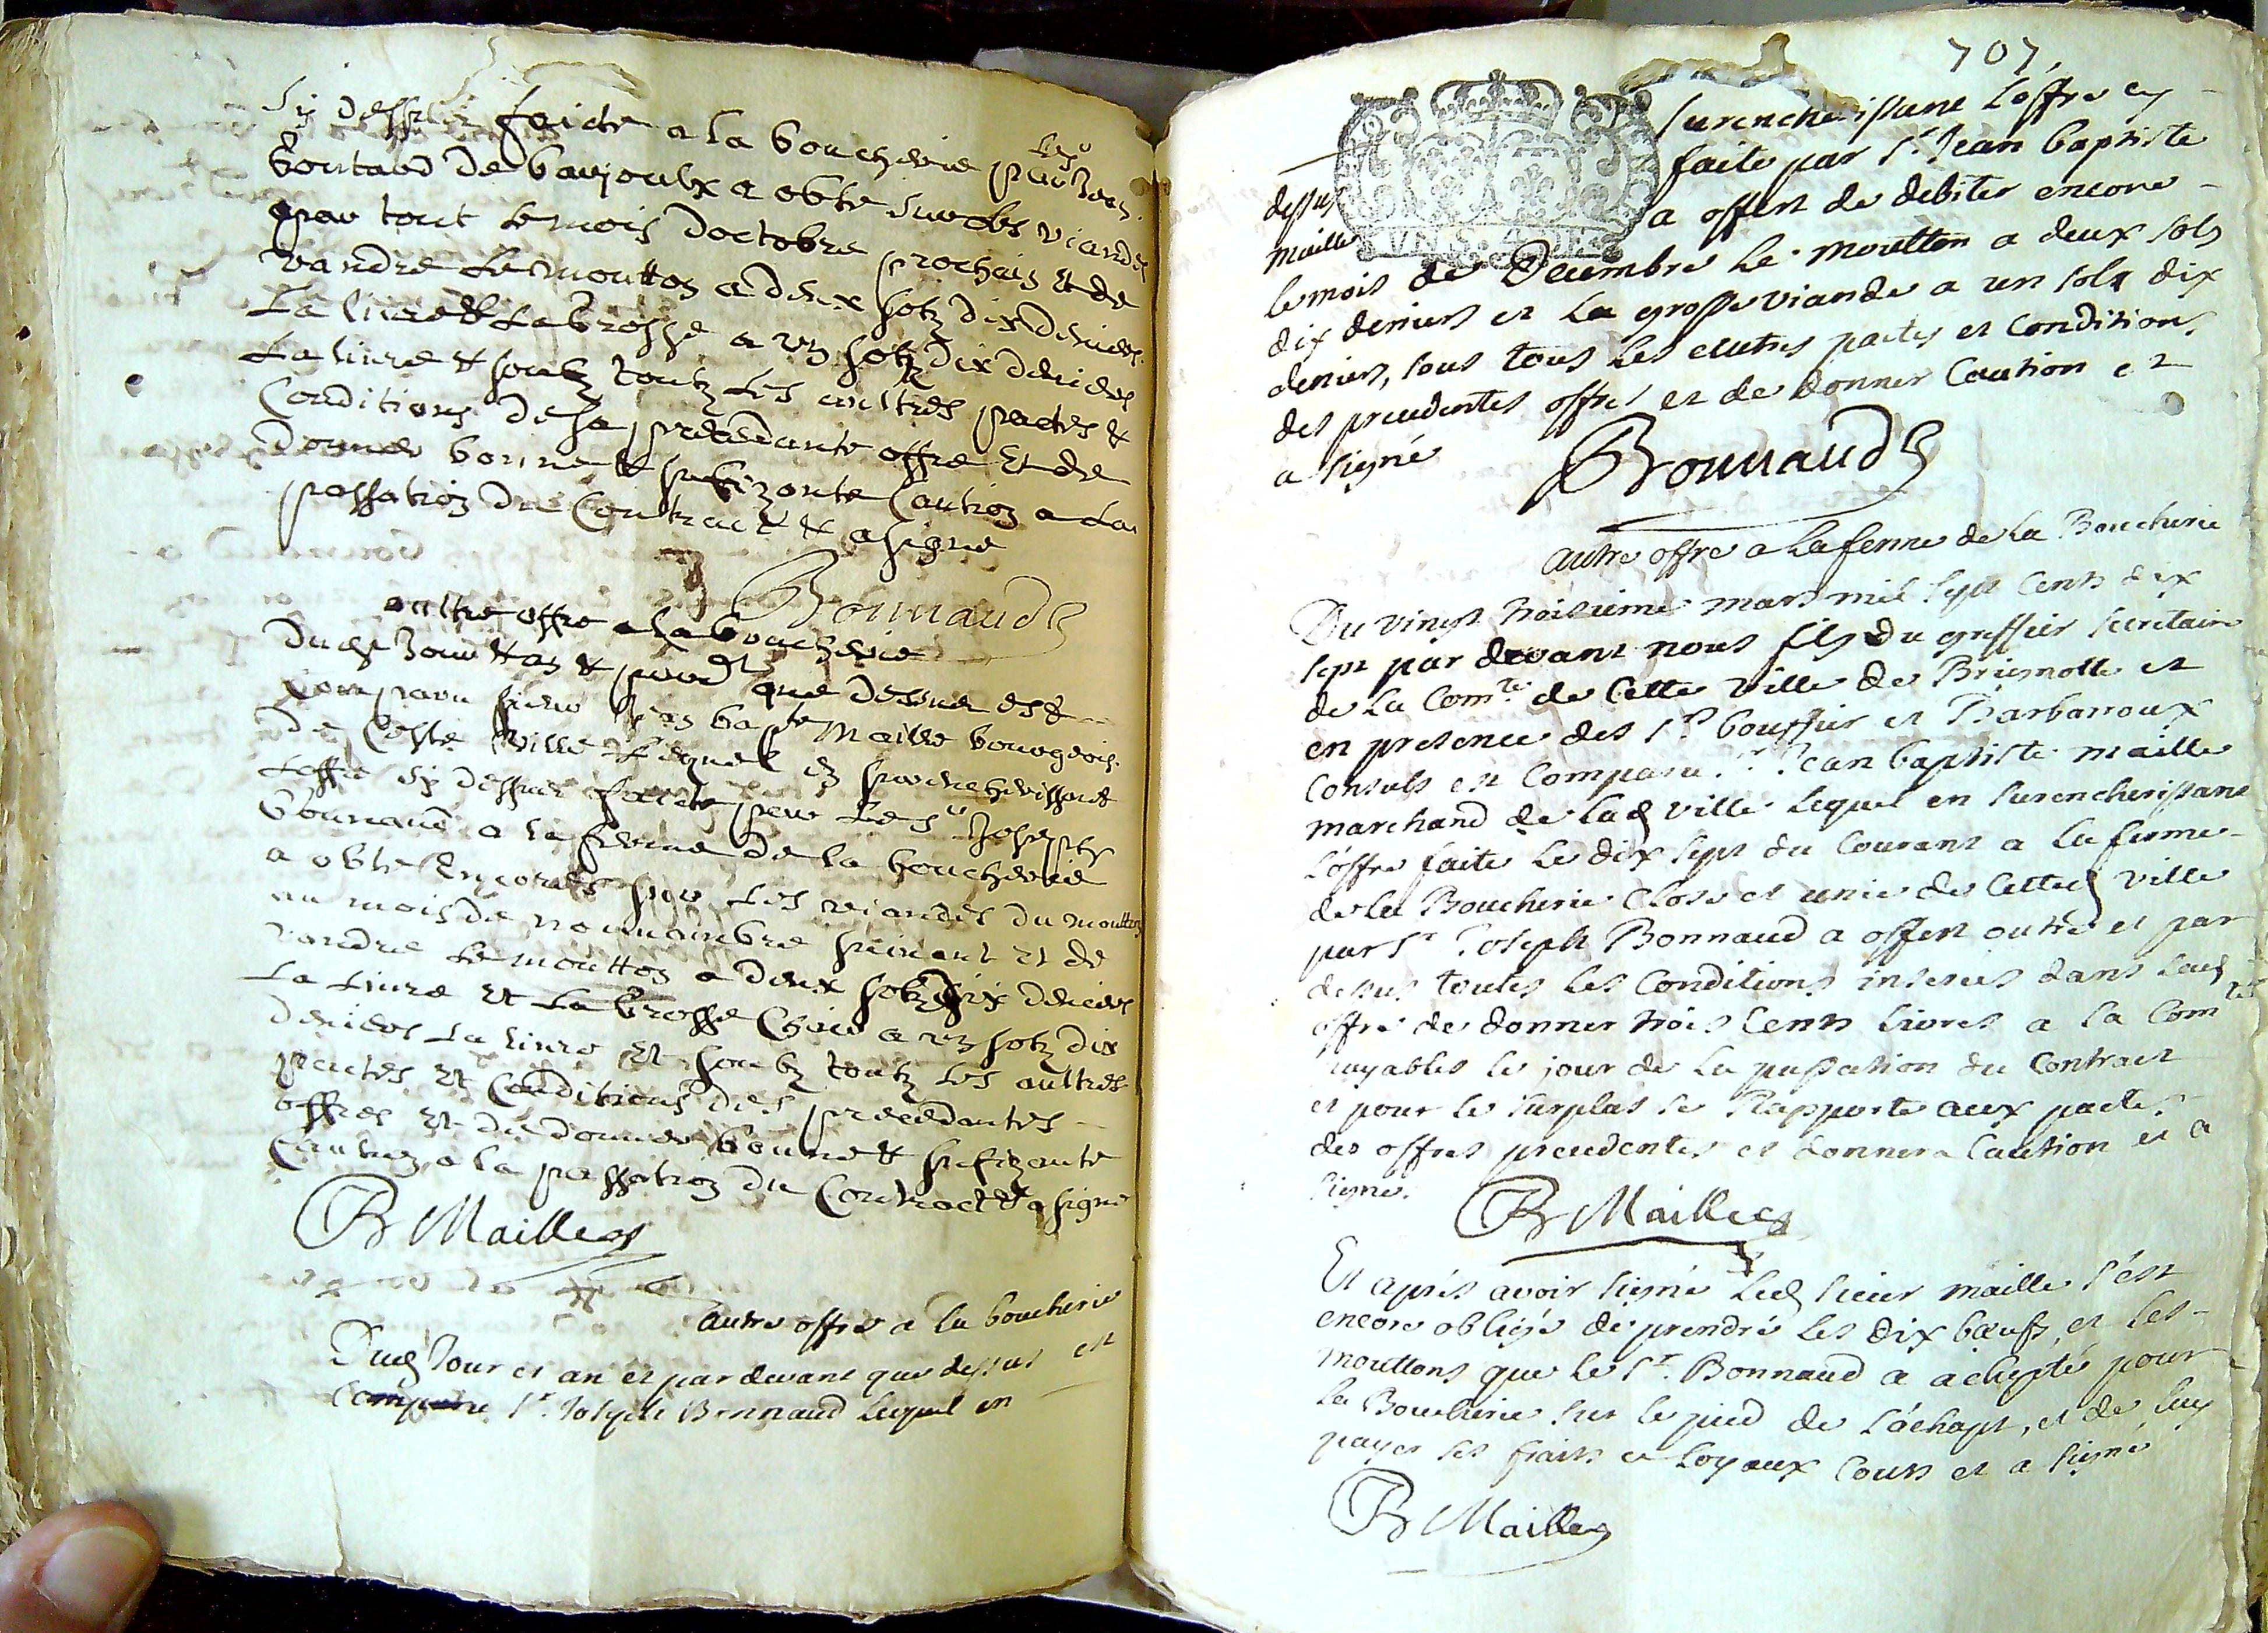 sy dessus faicte a la boucherie par le sr Jean
boutard de baujoulx a obte sur les viandes
par tout le mois doctobre prochain et de
vandre le moutton a deux solz dix deniers
la livre & la grosse a un solz dix deniers
la livre & soubz toutz les aultres pactes &
conditions de sa precedante offre et de
donner bonne & sufizante caution a la
passation du contract & a signé
Bonnaud
aultre offre a la boucherie
dud jour & an & pard^t que dessus est
comparu sieur Jean bap^te Maille bourgeois
de ceste ville lequel en surencherissant
loffre sy dessus faicte par le sr Joseph
bonnaud a la ferme de la boucherie
a obte encores sur les viandes du moutton
au mois de novambre suivant et de
vandre le moutton a deux solz dix deniers
la livre et la grosse chair a un solz dix
deniers la livre et soubz toutz les aultres
pactes et conditions des precedantes
offres et de donner bonne & sufizante
caution a la passation du contract & a signé
B Maille
autre offre a la boucherie
Dud Jour et an et par devant que dessus est
comparu sr Joseph Bonnaud lequel en
707
surencherissant l'offre cy
dessus faite par sr Jean baptiste
maille a offert de debiter encore
le mois de Decembre le moutton a deux sols
dix deniers et la grosse viande a un sols dix
deniers, sous tous les autres pactes et conditions
des precedentes offres et de donner Caution et
a signé
Bonnaud
autre offre a la ferme de la Boucherie
Du vingt troisieme mars mil sept cents dix
sept par devant nous fils du greffier secretaire
de la Com^te de Cette Ville de Brignolle et
en presence des srs bouffier et Barbarroux
Consuls est Comparu sr Jean baptiste maille
marchand de lad ville lequel en surencherissant
l'offre faite le dix sept du Courant a la ferme
de la Boucherie Close et unie de Cetted ville
par sr Joseph Bonnaud a offert outre et par
dessus toutes les Conditions inserées dans lad
offre de donner trois Cents livres a la Com^té
payables le jour de la passation du Contract
et pour le surplus se Rapporte aux pactes
des offres precedentes et donnera Caution et a
signé.
B Maille
Et aprés avoir signé Led sieur maille s'est
encore obligé de prendre les dix bœufs et les
mouttons que le sr. Bonnaud a achepté pour
la Boucherie sur le pied de l'achapt, et de luy
payer les fraits et loyaux Couts et a signé
B Maille